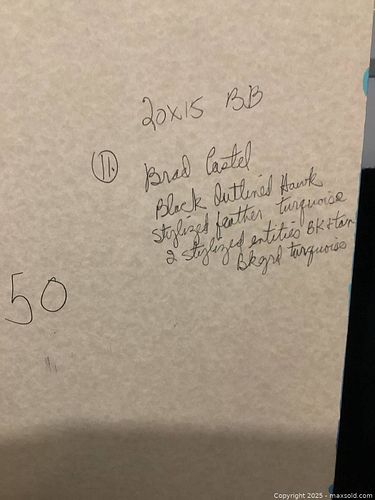 20x15 BB
11.
Brad Castel
Black Outlined Hawk
stylized feather turquoise
2 stylized entities BK+tan
Bkgrd turquoise
50
11.
Copyright 2025 - maxsold.com